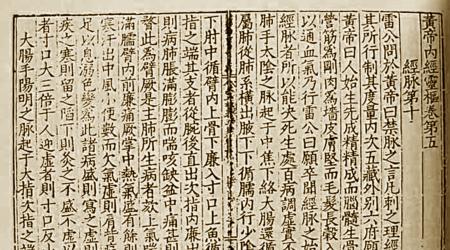 黃帝內經靈樞卷第五
經脈第十
雷公問於黃帝曰禁脈之言凡刺之理經
其所行制其度量內次五藏外別六府
黃帝曰人始生先成精精成而腦髓生骨
營筋為剛肉為墻皮膚堅而毛髮長穀入
以通血氣乃行雷公曰願卒聞經脈之始
經脈者所以能決死生處百病調虛實
肺手太陰之脈起于中焦下絡大腸還循
屬肺從肺系橫出腋下下循臑內行少陰
下肘中循臂內上骨下廉入寸口上魚循
指之端其支者從腕後直出次指內廉出
則病肺脹滿膨膨而喘咳缺盆中痛甚則
瞀此為臂厥是主肺所生病者欬上氣喘
滿臑臂內前廉痛厥掌中熱氣盛有餘
寒汗出中風小便數而欠氣虛則肩背
足以息溺色變為此諸病盛則寫之虛
疾之寒則留之陷下則灸之不盛不虛
者寸口大三倍于人迎虛者則寸口反
大腸手陽明之脈起于大指次指之端